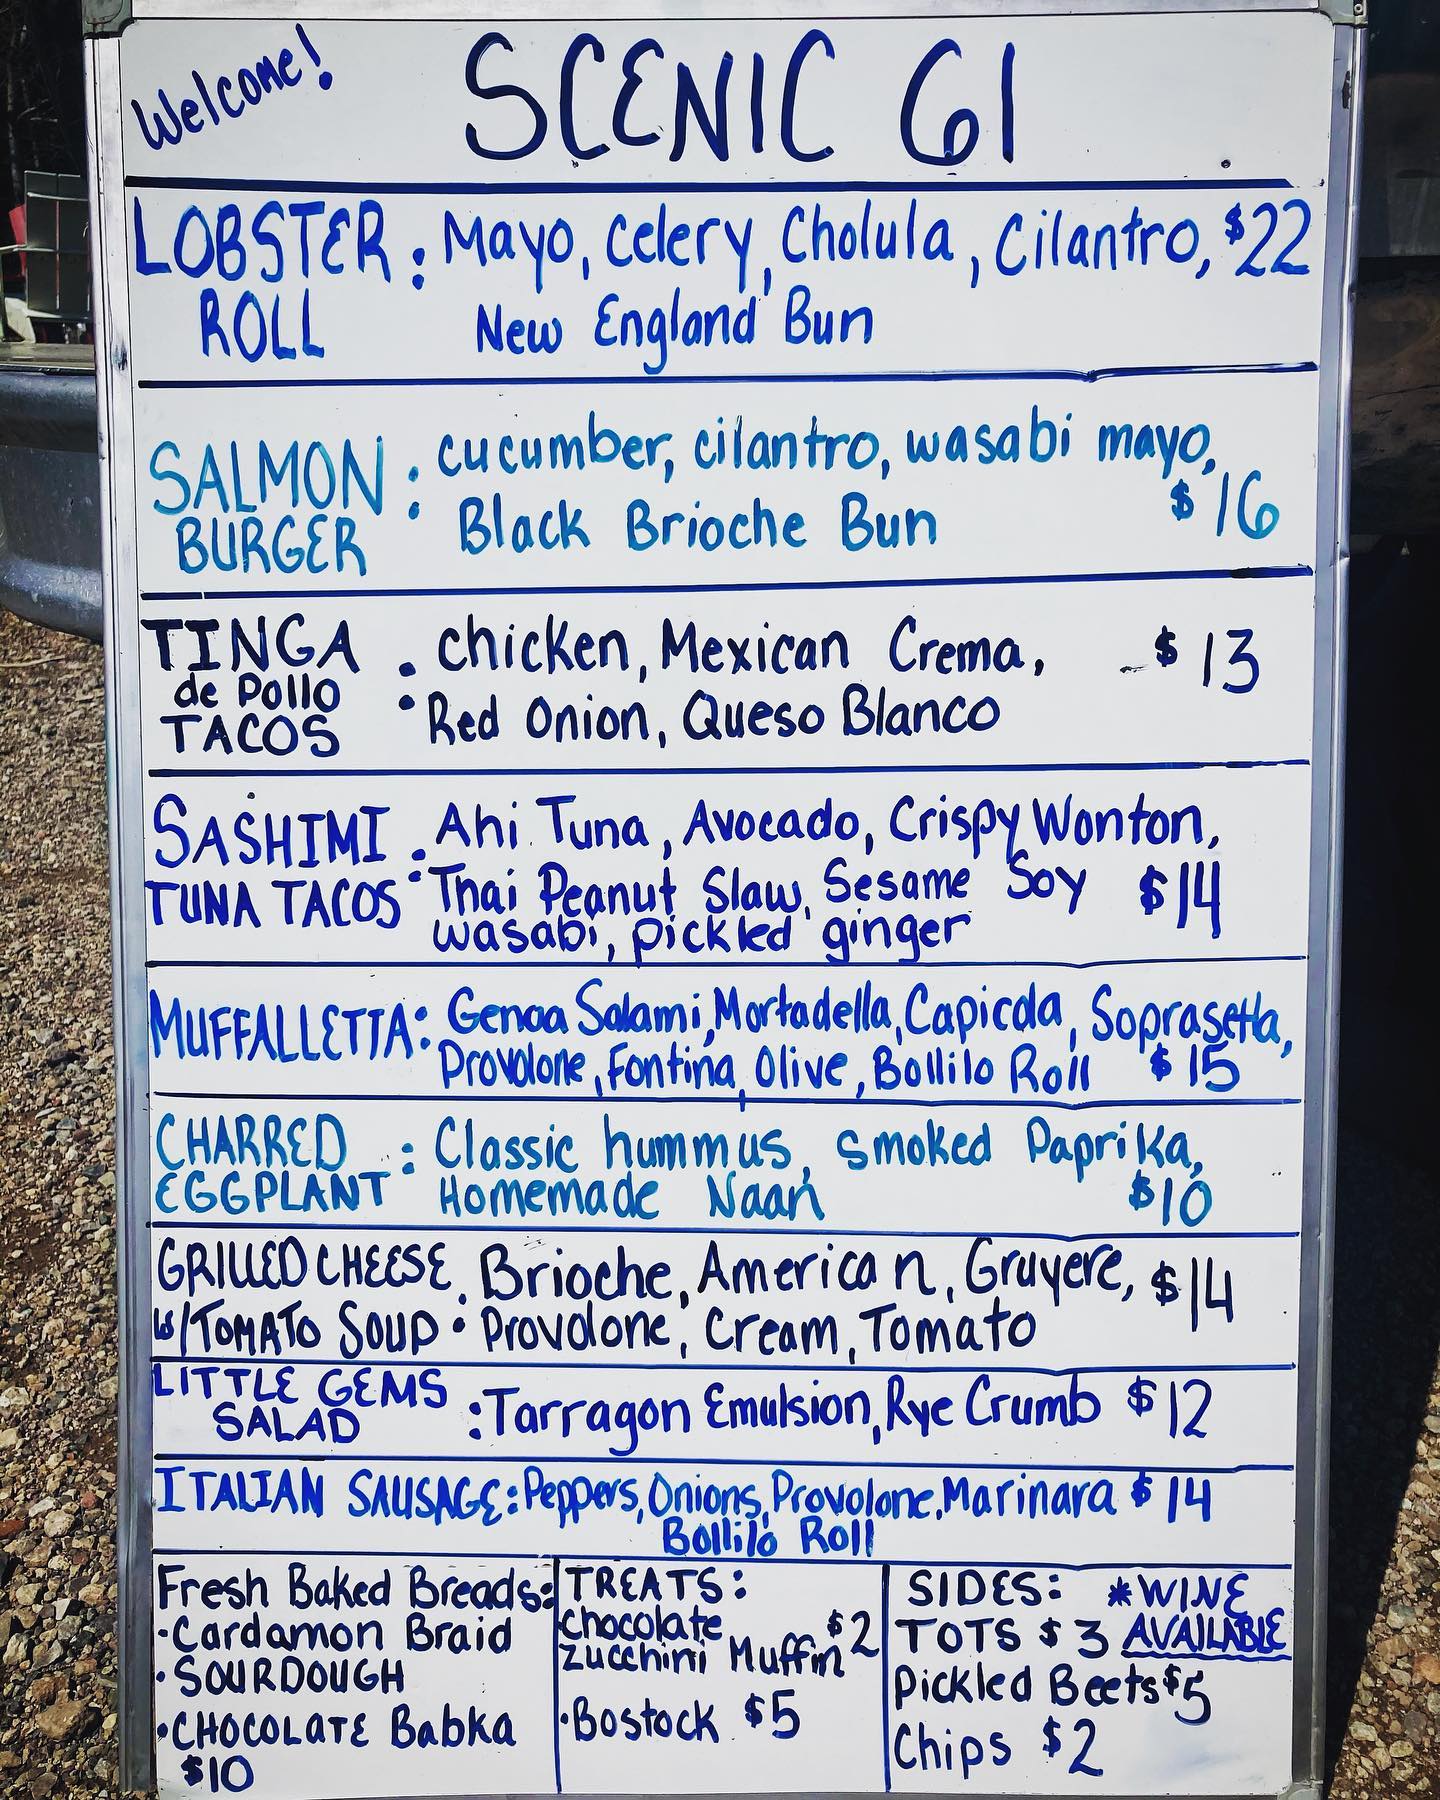 Welcome! SCENIC 61
LOBSTER : Mayo, Celery, Cholula, Cilantro, $22
ROLL New England Bun
SALMON : cucumber, cilantro, wasabi mayo,
BURGER Black Brioche Bun $16
TINGA : chicken, Mexican Crema, $13
de Pollo
TACOS Red Onion, Queso Blanco
SASHIMI : Ahi Tuna, Avocado, Crispy Wonton,
TUNA TACOS Thai Peanut Slaw, Sesame Soy $14
wasabi, pickled ginger
MUFFALLETTA: Genoa Salami, Mortadella, Capicola, Soprasetta,
Provolone, Fontina, Olive, Bollilo Roll $15
CHARRED : Classic hummus, smoked Paprika,
EGGPLANT Homemade Naan $10
GRILLED CHEESE : Brioche, American, Gruyere, $14
w/TOMATO SOUP Provolone, Cream, Tomato
LITTLE GEMS :Tarragon Emulsion, Rye Crumb $12
SALAD
ITALIAN SAUSAGE: Peppers, Onions, Provolone, Marinara $14
Bollilo Roll
Fresh Baked Breads:
·Cardamon Braid
·SOURDOUGH
·CHOCOLATE Babka
$10
TREATS:
Chocolate
zucchini Muffin $2
·Bostock $5
SIDES: *WINE
TOTS $3 AVAILABLE
Pickled Beets $5
Chips $2